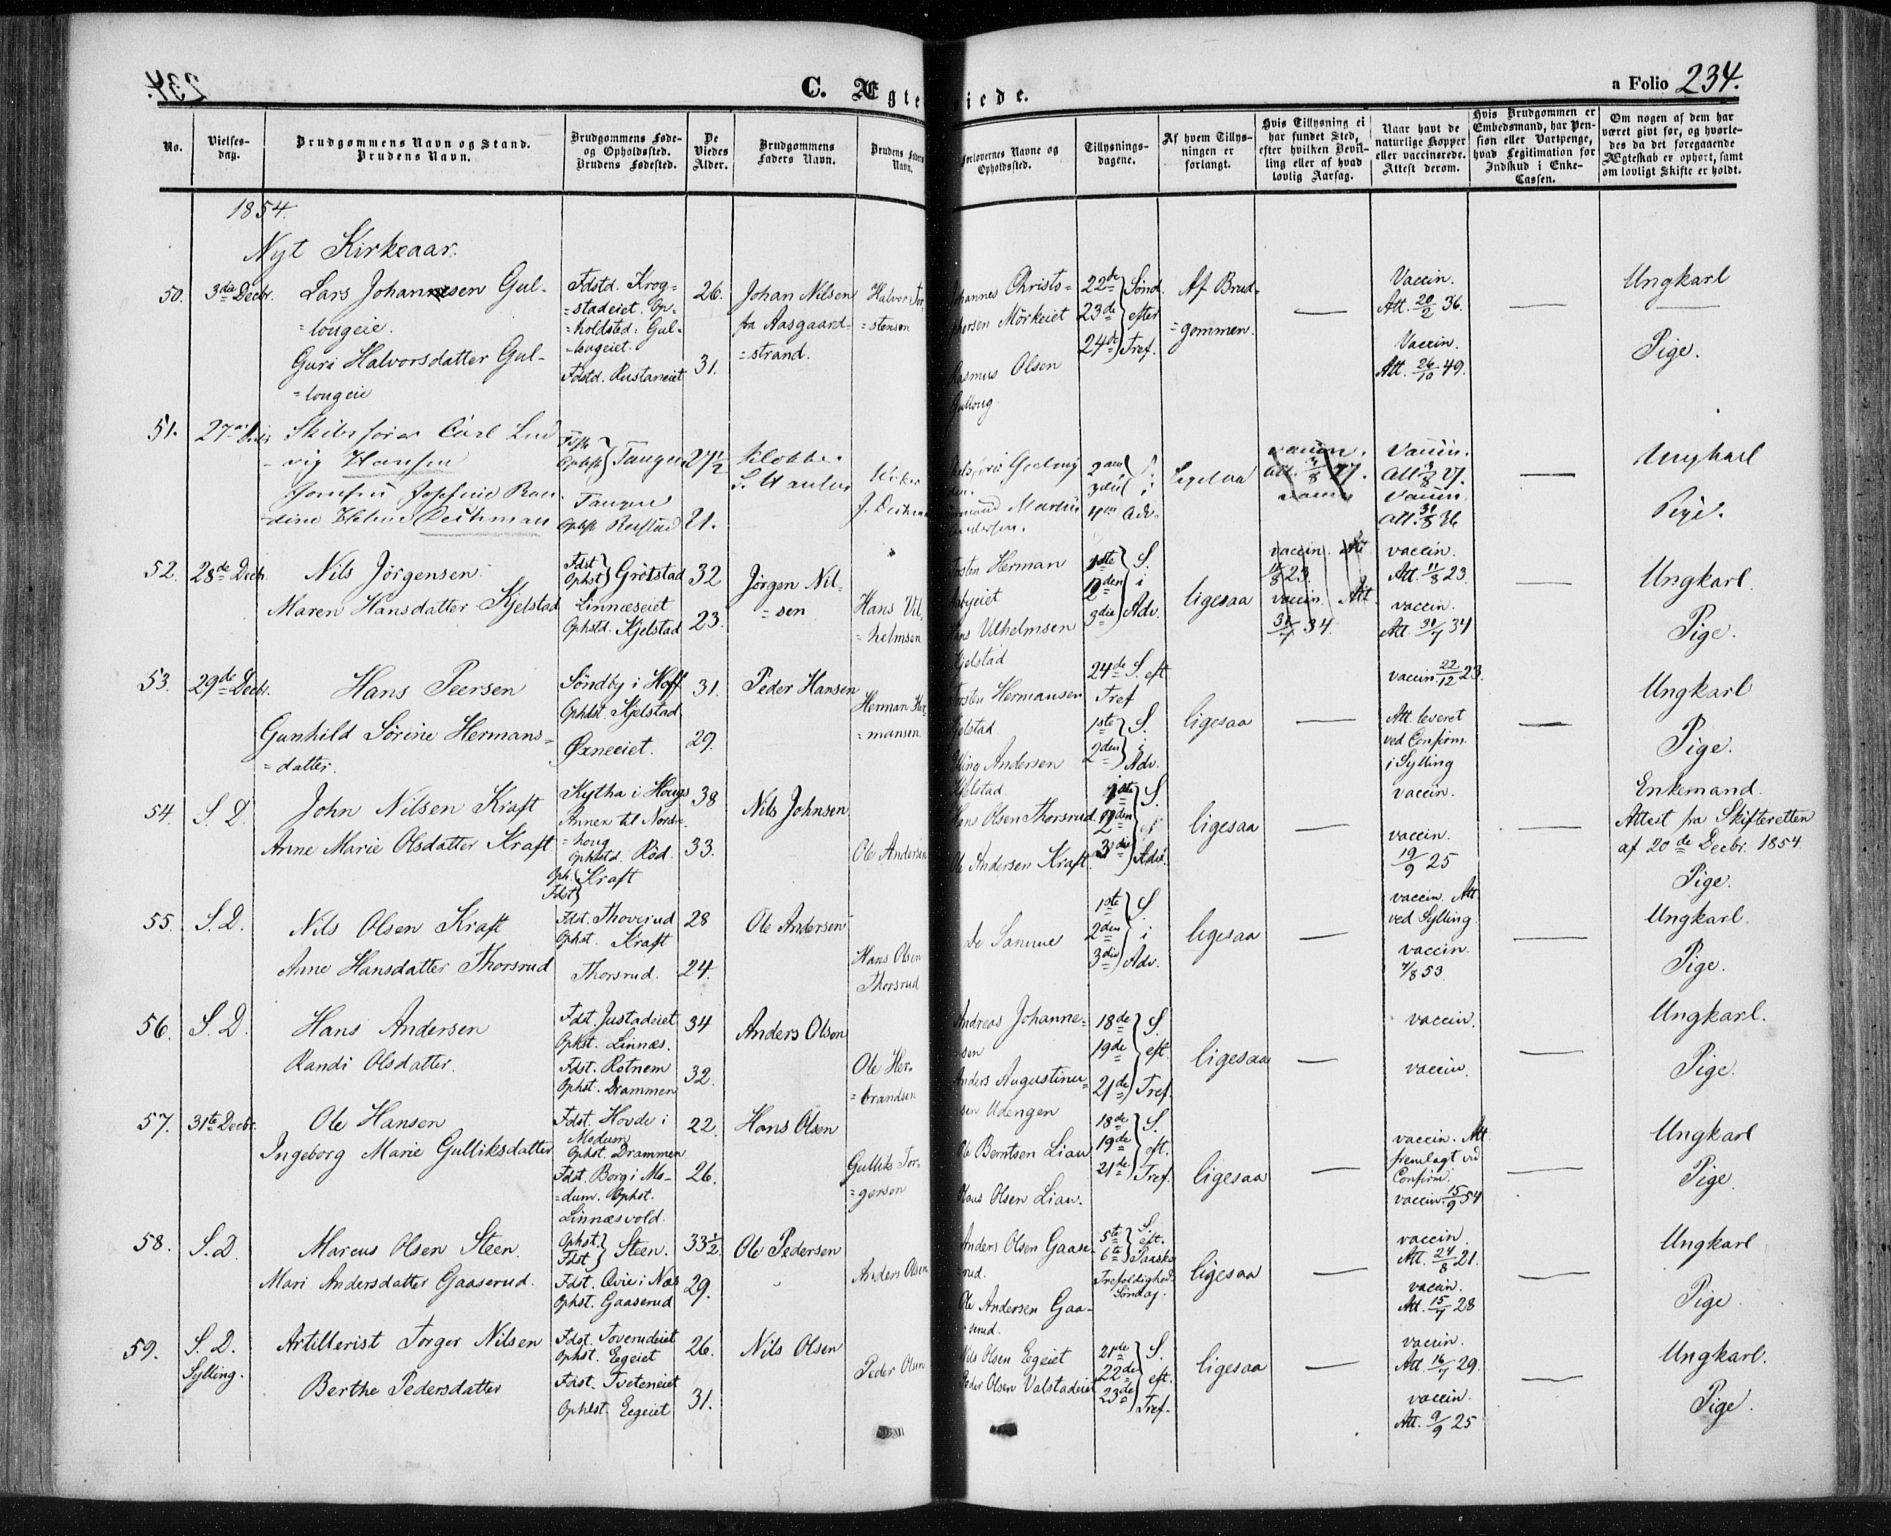 C. Ægteviede.
a Folio 234.
No.
Vielsesdag.
Brudgommens Navn og Stand.
Brudens Navn.
Brudgommens Føde-
og Opholdssted.
Brudens Fødested.
De
Viedes
Alder.
Brudgommens
Faders Navn.
Brudens Faders
Navn.
Forlovernes Navne og
Opholdsted.
Tillysnings-
dagene.
Af hvem Tillys-
ningen er
forlangt.
Hvis Tillysning ei
har fundet Sted,
efter hvilken Bevil-
ling eller af hvad
lovlig Aarsag.
Naar havt de
naturlige Kopper
eller vaccinerede.
Attest derom.
Hvis Brudgommen er
Embedsmand, har Pen-
sion eller Vartpenge,
hvad Legitimation for
Indskud i Enke-
Cassen.
Om nogen af dem har
været givt før, og hvorle-
des da det foregaaende
Ægteskab er ophørt, samt
om lovligt Skifte er holdt.
1854.
Nyt Kirkeaar.
50. 3die Decbr.
Lars Johannesen Gul-
=lougeie.
Guri Halvorsdatter Gul-
=lougeie
Fdstd. Krog=
=stadeiet. Op=
=holdsted: Gul-
-lougeiet.
Fdstd. Rustaneiet
26.
31.
Johan Nilsen
fra Aasgaard=
=strand.
Halvor Tor
=stensen
Johannes Christo=
phersen Mörkeiet
Rasmus Olsen
Gulloug.
22de 23de 24de Sönd. efter Tref.
Af Brud=
=gommen.
Vaccin.
Att. 20/2 36.
Vaccin.
Att. 26/10 49.
Ungkarl
Pige.
51. 27de
Skibsfører Carl Lud
-vig Hansen
Josefine
-dine Helene Deichman
Tangen
Tangen
27½
21.
J. Deichman
2den 3die 4de Adv.
Ligelaa
vaccin.
vaccin
Vaccin.
Att. 3/8 27.
Vaccin.
Att. 31/8 36
Ungkarl
Pige.
52. 28de Decbr.
Nils Jörgensen.
Maren Hansdatter Kjelstad
Fdst Ophst } Grötstad
Linnæseiet
Ophstd. Kjelstad
32
23.
Jörgen Nil-
=sen
Hans Vil
=helmsen
Torsten Herman
Hans Vilhelmsen
Kjelstad
1ste 2den 3die S. i Adv.
ligesaa
vaccin. Att
11/8 23.
vaccin. Att.
31/7 34.
vaccin.
Att. 11/8 23.
vaccin.
Att. 31/7 34
Ungkarl.
Pige.
53. 29de Decbr.
Hans Peersen
Gunhild Sörine Hermans=
=datter.
Söndby i Hoff
Ophdst. Kjelstad
Øxneeiet.
31.
29.
Peder Hansen
Herman Her=
=mansen
Torsten Hermansen
Kjelstad
Elling Andersen
Kjelstad
24de S. eft.
Tref
1ste 2den S. i Adv.
ligesaa
vaccin 22/12 23.
Att. leveret
ved Confirm.
i Sylling
Ungkarl
Pige.
54. S. D.
John Nilsen Kraft
Anne Marie Olsdatter Kraft
Kytha i Hougs
Annex til Nordre
=houg
Ophstd. Röd.
Oph. Fdst } Kraft
38
33.
Nils Johnsen
Ole Andersen
Hans Olsen Thorsrud.
Ole Andersen Kraft
1ste 2den 3die S. Adv.
ligesaa
vaccin.
vaccin.
19/9 25
Enkemand.
Attest fra Skifteretten
af 20de Decbr. 1854
Pige.
55. S. D.
Nils Olsen Kraft
Anne Hansdatter Thorsrud
Fdst. Thoverud
Ophst. Kraft
Thorsrud.
28
24.
Ole Andersen
Hans Olsen
Thorsrud
De Samme
1ste 2den 3die S. i Adv.
ligesaa
vaccin. Att
ved Sylling.
vaccin.
7/8 53.
Ungkarl.
Pige.
56. S. D.
Hans Andersen
Randi Olsdatter.
Fdst. Justadeiet
Ophst. Linnæs.
Fdst. Rotnem
Ophst. Drammen
34
32.
Anders Olsen
Ole Her=
=brandsen
Andreas Johanne=
=sen
Anders Augustinu=
sen Udengen
18de 19de 21de S. eft. Tref.
ligesaa
vaccin.
vaccin.
Ungkarl.
Pige.
57. 31te Decbr.
Ole Hansen
Ingeborg Marie Gulliksdatter
Fdst. Hovde i
Modum
Ophst. Drammen
Fdst. Borg i Mo-
=dum. Ophst.
Linnæsvold.
22.
26.
Hans Olsen
Gullik Tor=
=gersen
Ole Berntsen Liau
Hans Olsen Liau.
18de 19de 21de S. eft. Tref.
ligesaa
vaccin. Att
fremlagt ved
Confirm.
vaccin. 15/9 54
Ungkarl
Pige.
58. S. D.
Marcus Olsen Steen.
Mari Andersdatter Gaaserud.
Ophst. Fdst } Steen.
Fdst. Qvie i Næs
Ophst. Gaaserud
33½
29.
Ole Pedersen
Anders Olsen
Anders Olsen Gaase-
rud.
Ole Andersen Gaa-
=serud.
5te 6te S. eft. Paaske
Trefoldighed
Söndag.
ligesaa
vaccin.
Att. 24/8 21.
vaccin.
Att. 15/7 28
Ungkarl
Pige.
59. S. D.
Sylling.
Artillerist Torger Nilsen
Berthe Pedersdatter
Fdst. Toverudeiet
Ophst. Eegeiet
Fdst. Tveteneiet
Ophlst. Eegeiet
26.
31.
Nils Olsen
Peder Olsen
Nils Olsen Egeiet
Peder Olsen Valstadeiet
21de 22de 23de S. eft. Tref.
ligesaa
vaccin.
Att. 16/7 29.
vaccin.
Att. 9/9 25
Ungkarl.
Pige.